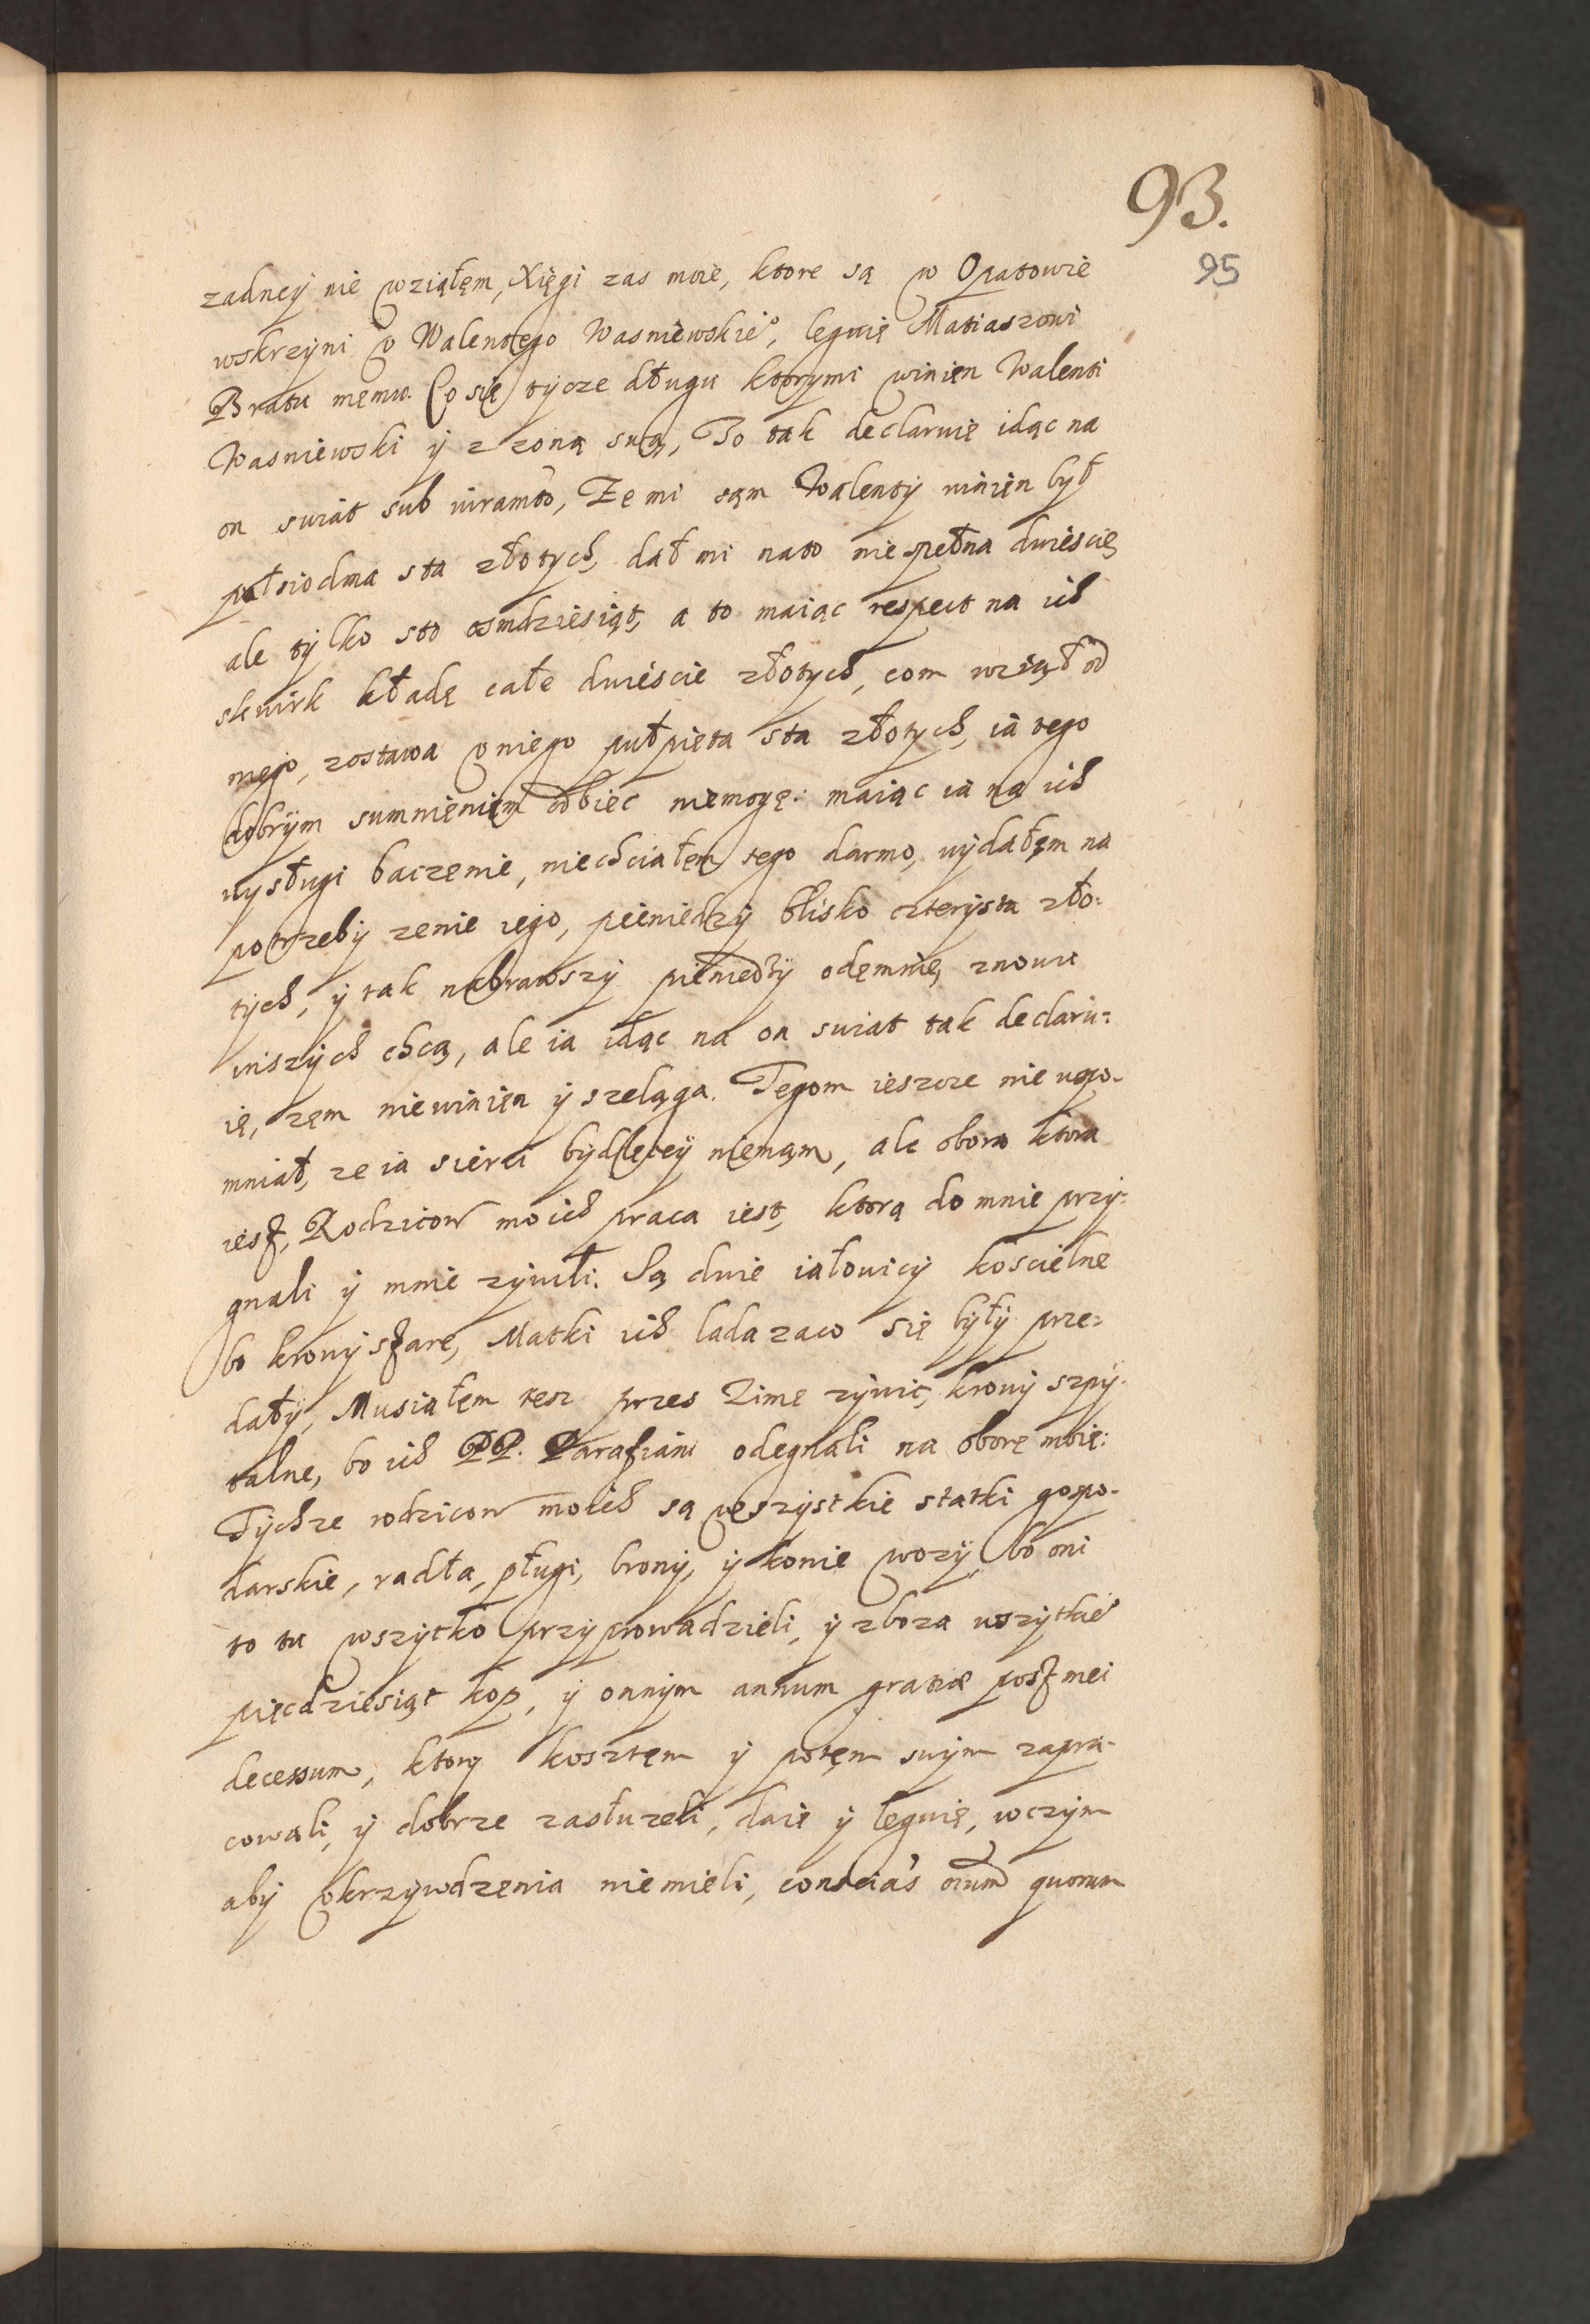 93.
95
zadney nie wziąłęm, Xięgi zas moie, ktore są w Opatowie
wskrzyni v Walentego Wasniewskieº, leguię Matiaszowi
Bratu męmu. Co się tycze długu ktorymi winięn Walenti
Wasniewski ÿ z zoną swą, To tak declaruię idąc na
on swiat sub iuramto, Zę mi sąm Walentÿ winięn był
pułsiodma sta złotych, dał mi nato nie pełna dwiescię
ale tÿlko sto osmdziesiąt, a to maiąc respect na ich
skwirk kładę całe dwiescie złotych, com wziął od
niego, zostawa v niego pułpięta sta złotych, ia tego
dobrÿm sumnięnięm odbiec niemogę: maiąc ia na ich
wysługi baczęnie, niechciałęm tego darmo, wÿdałęm na
potrzebÿ zenie iego, pieniedzÿ blisko czterÿsta zło:
tÿch, ÿ tak nabrawszÿ pieniedzÿ odęmnię, znowu
inszÿch chcą, ale ia idąc na on swiat tak declaru:
ię, zęm niewinięn ÿ szeląga. Tegom ieszcze nie wspo-
mniał, ze ia sierci bÿdlęcey niemąm, ale obora ktora
iest, Rodzicow moich praca iest, ktorą do mnie przÿ:
gnali ÿ mnie zÿwili. Są dwie iałowicÿ koscielne
bo krowÿ stare, Matki ich lada zaco się bÿłÿ prze:
dałÿ, Musiałęm tesz przes Zimę zÿwic, krowÿ szpÿ-
talne, bo ich PP. Parafiani odegnali na oborę moię:
Tÿchze rodzicow moich są wszystkie statki gospo-
darskie, radła, pługi, bronÿ, ÿ konie wozÿ, bo oni
to tu wszytko przyprowadzieli, ÿ zboza wszytkieº
pięcdziesiąt kop, ÿ onnÿm annum gratiæ post mei
decessum, ktorÿ kosztęm ÿ potęm swÿm zapra-
cowali, ÿ dobrze zasłuzeli, daię ÿ leguię, wczÿm
abÿ vkrzywdzęnia niemieli, conscias orum quorum